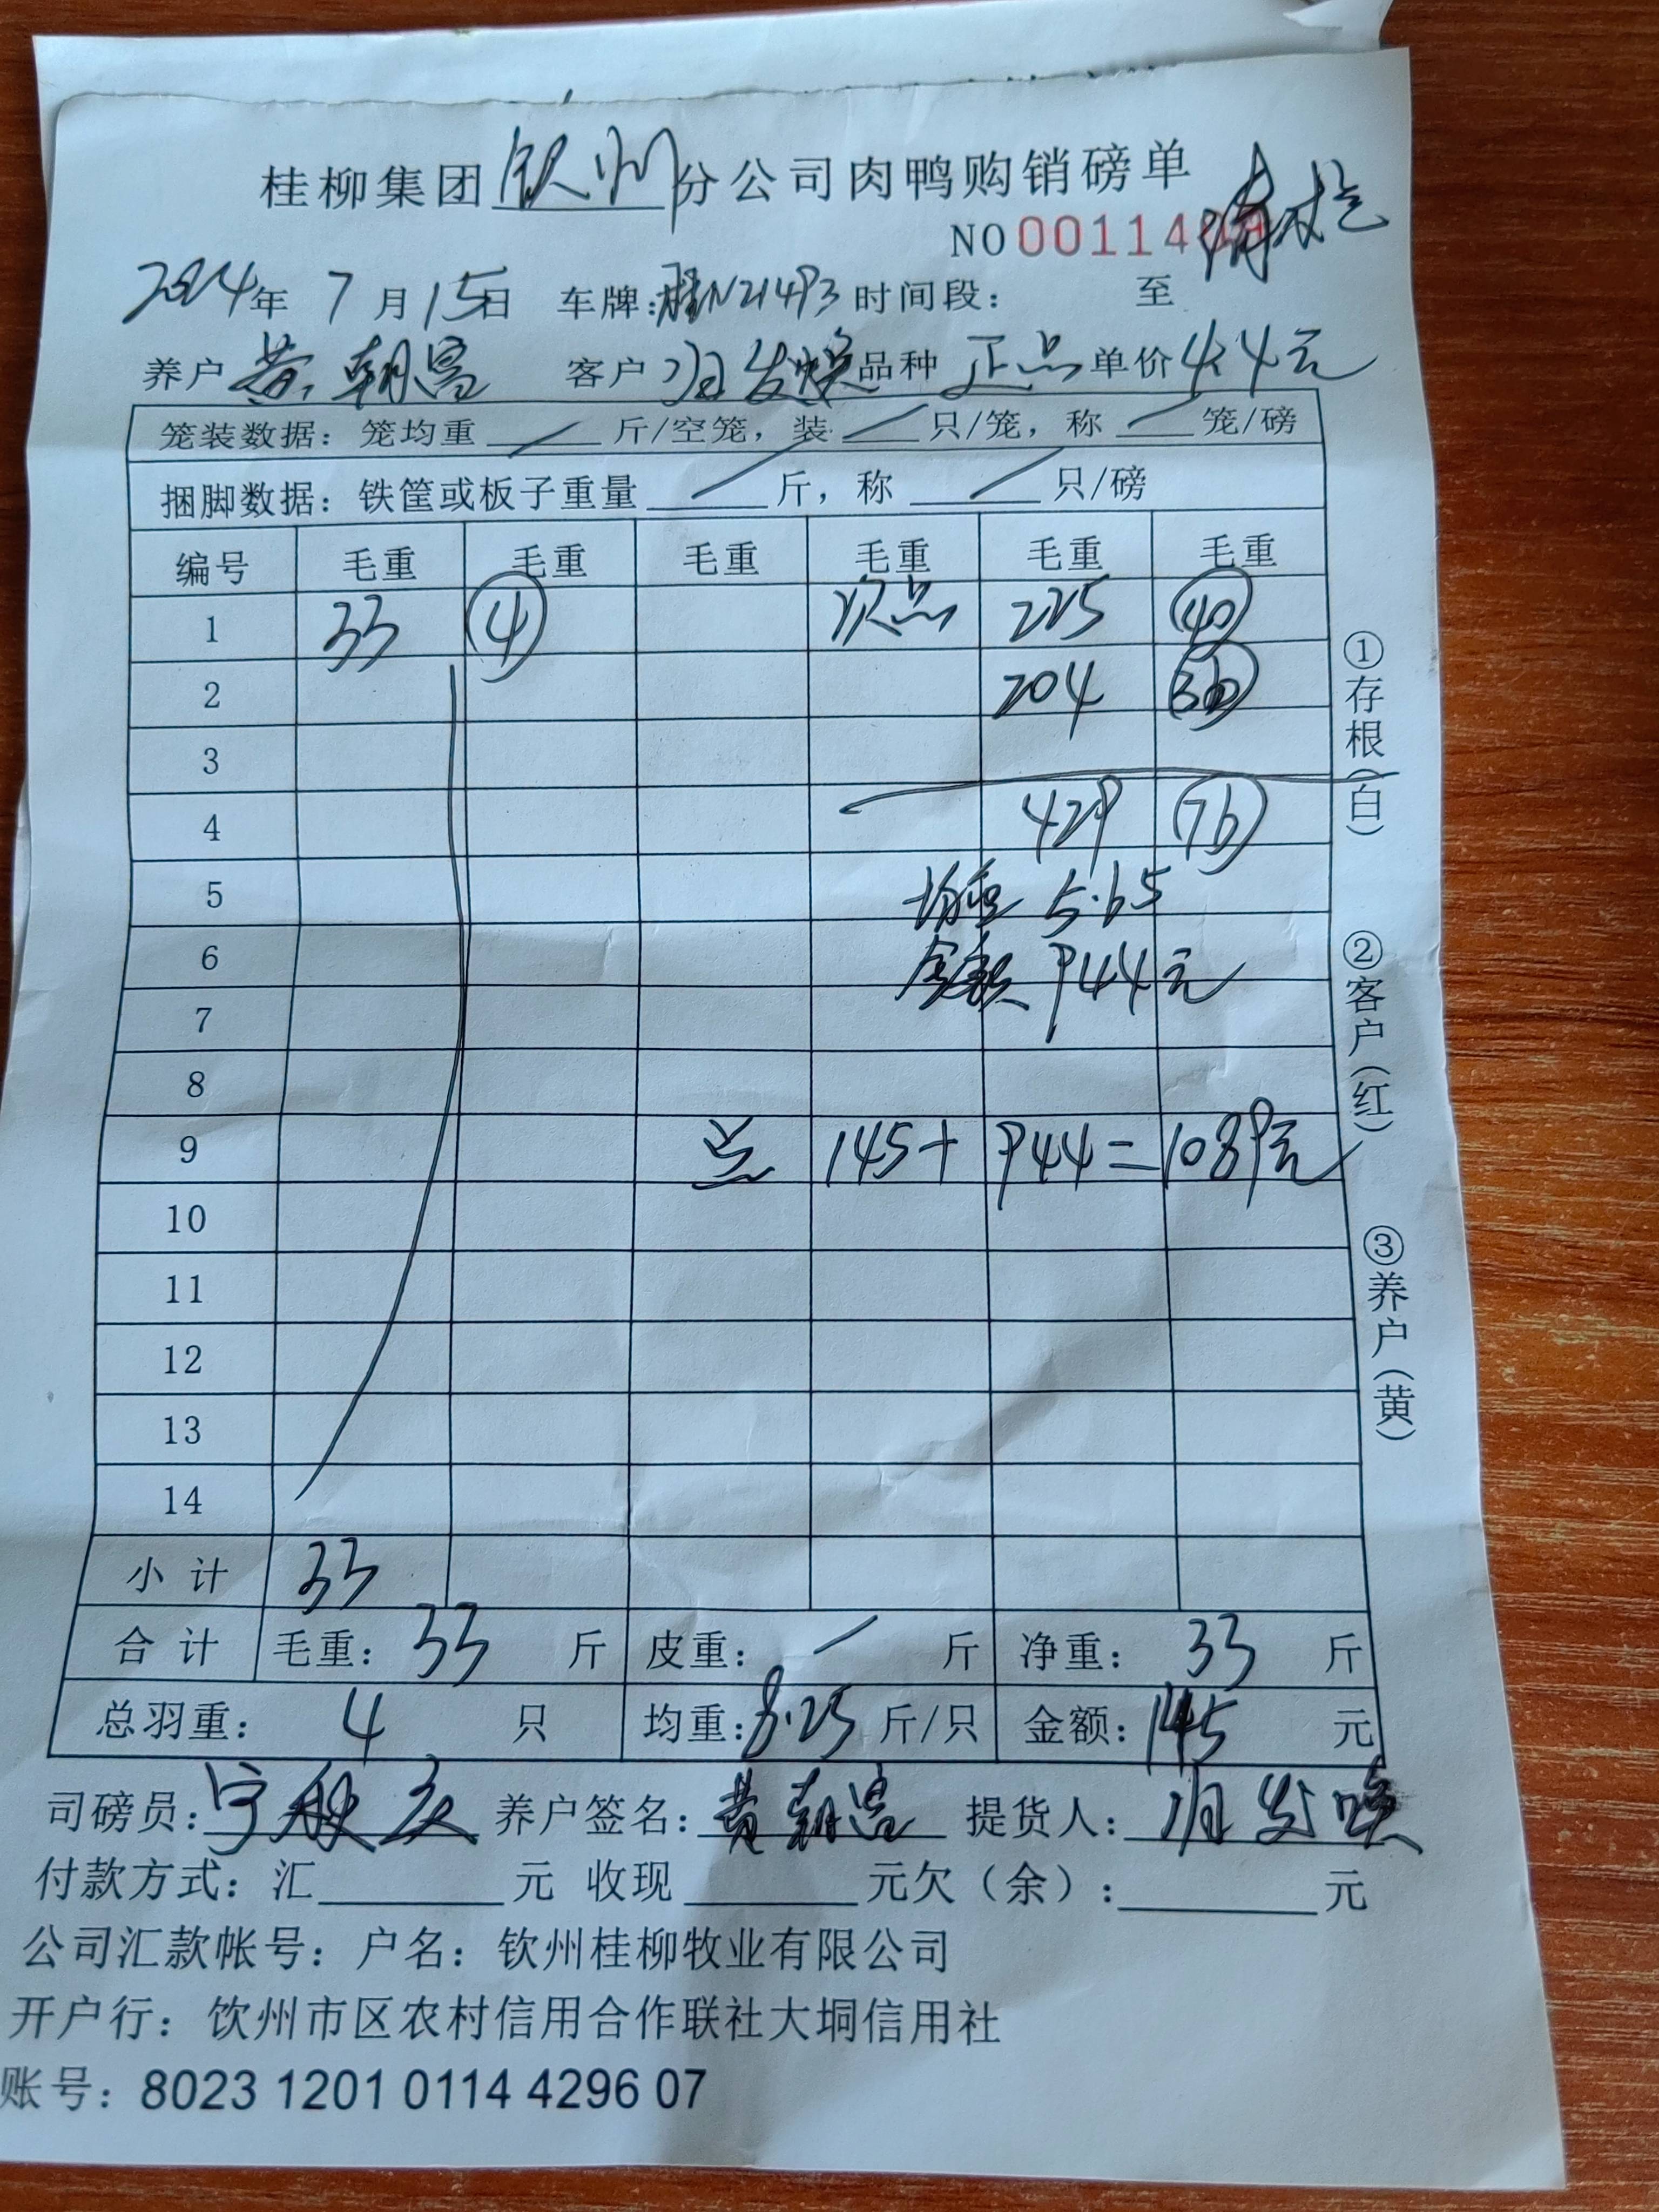 桂柳集团钦州分公司肉鸭购销磅单
NO 00114
2024年 7月15日 车牌:桂N21493 时间段: 至
养户 黄朝昌 客户 发 品种 正品 单价 4.4元
笼装数据: 笼均重 / 斤/空笼, 装 / 只/笼, 称 / 笼/磅
捆脚数据: 铁筐或板子重量 / 斤, 称 / 只/磅
编号 毛重 毛重 毛重 毛重 毛重 毛重
1 33 ④ 次品 225 ㊵
2 204 36
3
4 429 76
5 均重 5.65
6 金额 944元
7
8
9 总 145+944=1089元
10
11
12
13
14
小计 33
合计 毛重: 33 斤 皮重: / 斤 净重: 33 斤
总羽重: 4 只 均重: 8.25 斤/只 金额: 145 元
司磅员: 宁秋 养户签名: 黄朝昌 提货人: 发
付款方式: 汇 元 收现 元欠(余): 元
公司汇款帐号: 户名: 钦州桂柳牧业有限公司
开户行: 饮州市区农村信用合作联社大垌信用社
账号: 8023 1201 0114 4296 07
①存根(白)
②客户(红)
③养户(黄)